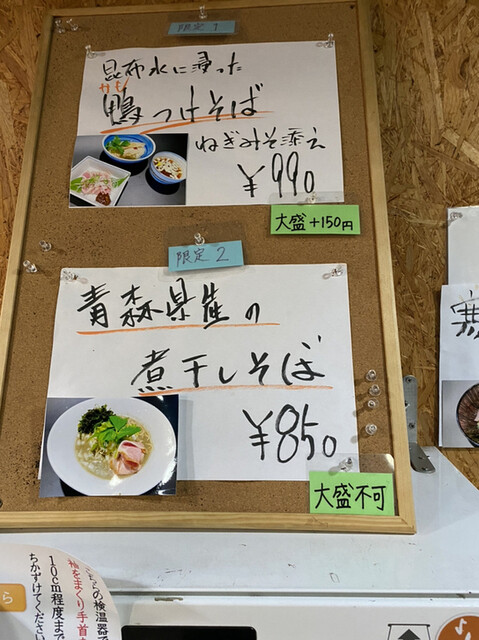 限定1
昆布水に浸った
かも
鴨つけそば
ねぎみそ添え
¥990
大盛+150円
限定2
青森県産の
煮干しそば
¥850
大盛不可
こちらの検温器で
袖をまくり手首
10cm程度まで
ちかずけてください
ら